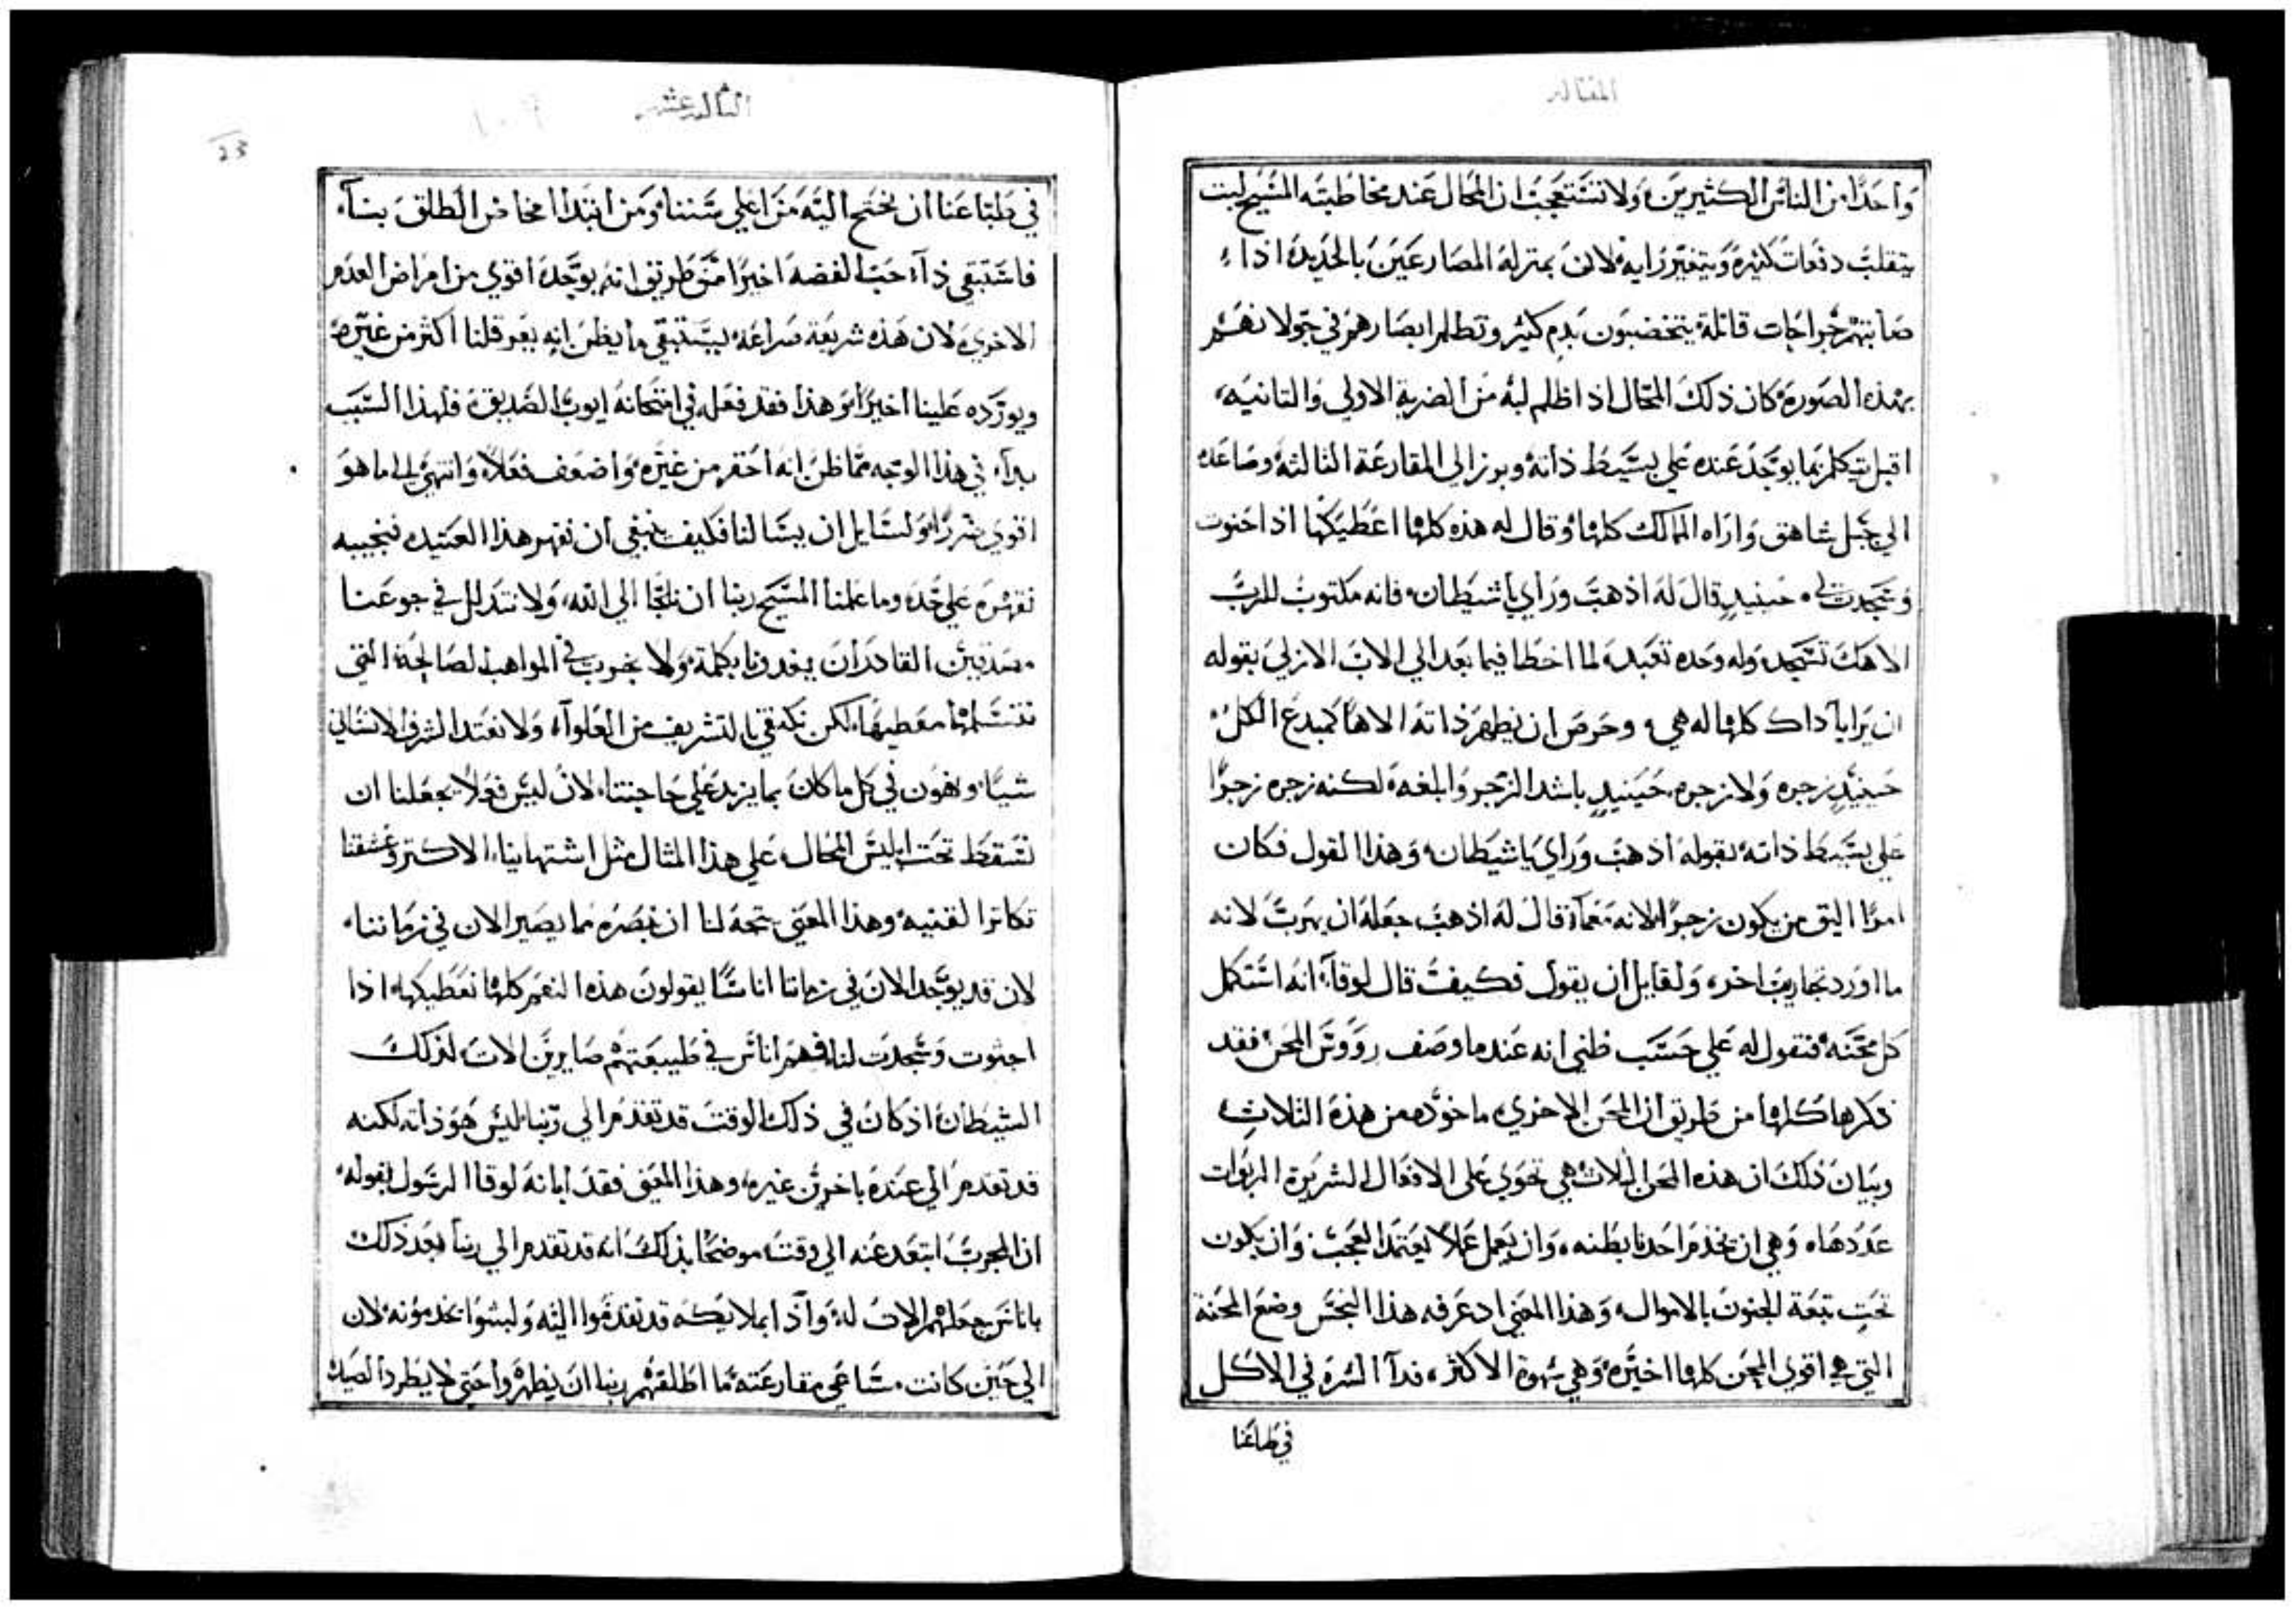 المقاله
واحدًا من الناس الكثيرين ولا تستعجب ان المحال عند مخاطبته المسيح لبت
يتقلب دفعات كثيره ويتغير رايه لان بمنزلة المصارعين بالحديده اذا
صابتهم جراحات قاتلة يتخضبون بدم كثير وتظلم ابصارهم في جولانهم
بهذه الصوره كان ذلك المحال اذ اظلم لبه من الضربة الاولي والتانيه
اقبل يتكلم بما يوجد عنده علي بسيط ذاته وبرز الي المقارعة الثالثه وصاعده
الي جبل شاهق واراه الممالك كلها وقال له هذه كلها اعطيكها اذا اجتوت
وسجدت لي حينيدٍ قال له اذهب وراي ياشيطان فانه مكتوب للرب
الاهك تسجد وله وحده تعبد لما اخطا فيما بعد الي الاب الازلي بقوله
ان برايا داك كلها له هي وحرص ان يظهر ذاته الاهًا كمبدع الكل
حينيدٍ زجره ولا زجره حينيدٍ باشد الزجر وابلغه لكنه زجره زجرًا
علي بسيط ذاته بقوله اذهب وراي ياشيطان وهذا القول فكان
امرًا اليق من يكون زجرًا لانه معما قال له اذهب جعله ان يهرب لانه
ما اورد تجاريب اخر ولقايل ان يقول فكيف قال لوقا انه استكمل
كل محنه فنقول له علي حسب ظني انه عندما وصف رووس المحن فقد
ذكرها كلها من طريق ان المحن الاخري ماخوده من هذه الثلاث
وبيان ذلك ان هذه المحن الثلاث هي تحوي علي الافعال الشريرة الربوات
عددها وهي ان يخدم احدنا بطنه وان يعمل عملاً يعتمد العجب وان يكون
تحت تبعة الجنون بالاموال وهذا المعني اد عرفه هذا النجس وضع المحنة
التي هي اقوي المحن كلها اخيره وهي شهوة الاكثر فدا الشره في الاكل
في طباعنا
الثالثه عشر
23
في طباعنا ان نحتج اليه من اعلي سننا ومن ابتدا مخاض الطلق بنا
فاستبقي ذا حب الفضه اخيرًا من طريق انه يوجد اقوي من امراض العدم
الاخري لان هذه شريعة صراعه يستبقي ما يظن انه يعرقلنا اكثر من غيره
ويورده علينا اخيرًا وهذا فقد فعله في امتحانه ايوب الصديق فلهذا السبب
بدا في هذا الوجه مما ظن انه احقر من غيره واضعف فعلاً وانتهي الي ما هو
اقوي ضررًا ولسايل ان يسالنا فكيف ينبغي ان نقهر هذا العتيده فنجيبه
نقهره علي حد وما علمنا المسيح ربنا ان نلتجا الي الله ولا نتدلل في جوعنا
مصدقين القادر ان يغدونا بكلمة ولا نجرب في المواهب الصالحة التي
نتسلمها معطيها لكن نكتفي بالتشريف من العلوا ولا نعتد الشرف الانساني
شيًا ونهون في كل ما كان بما يزيد علي حاجتنا لان ليس فعلاً يجعلنا ان
نسقط تحت ابليس المحال علي هذا المثال مثل اشتهاينا الاكتر وعشقنا
تكاثرا لقنيه وهذا المعني يتجه لنا ان نبصره مما يصير الان في زماننا
لان قد يوجد الان في زماننا اناسًا يقولون هذه النعم كلها نعطيكها اذا
اجثوت وسجدت لنا فهم اناس في طبيعتهم صايرين الات لذلك
الشيطان اذ كان في ذلك الوقت قد تقدم الي ربنا ليس هو ذاته لكنه
قد تقدم الي عنده باخرين غيره وهذا المعني فقد ابانه لوقا الرسول بقوله
ان المجرب ابتعد عنه الي وقت موضحًا بذلك انه قد تقدم الي ربنا بعد ذلك
باناس جعلهم الات له واذا بملايكه قد تقدموا اليه ولبثوا يخدمونه لان
الي حين كانت ساعي مقارعته ما اطلقهم ربنا ان يظهروا حتي لا يطرد الصيد